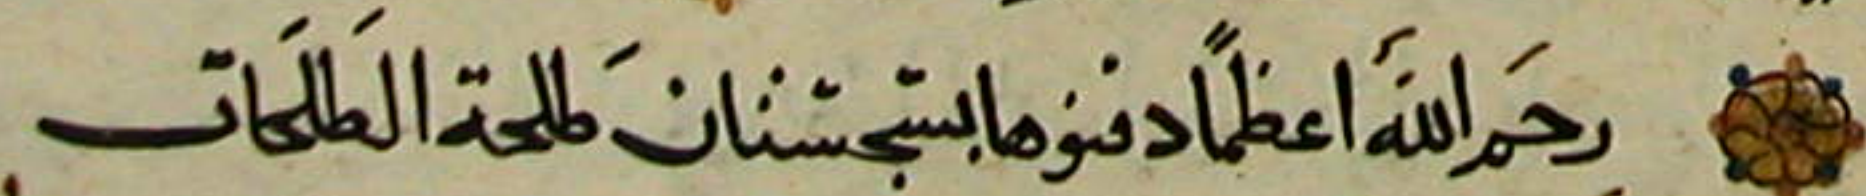 رحَم اللهَ اعظمًا دفنوها بسجستنان طلحَة الطَلحَات